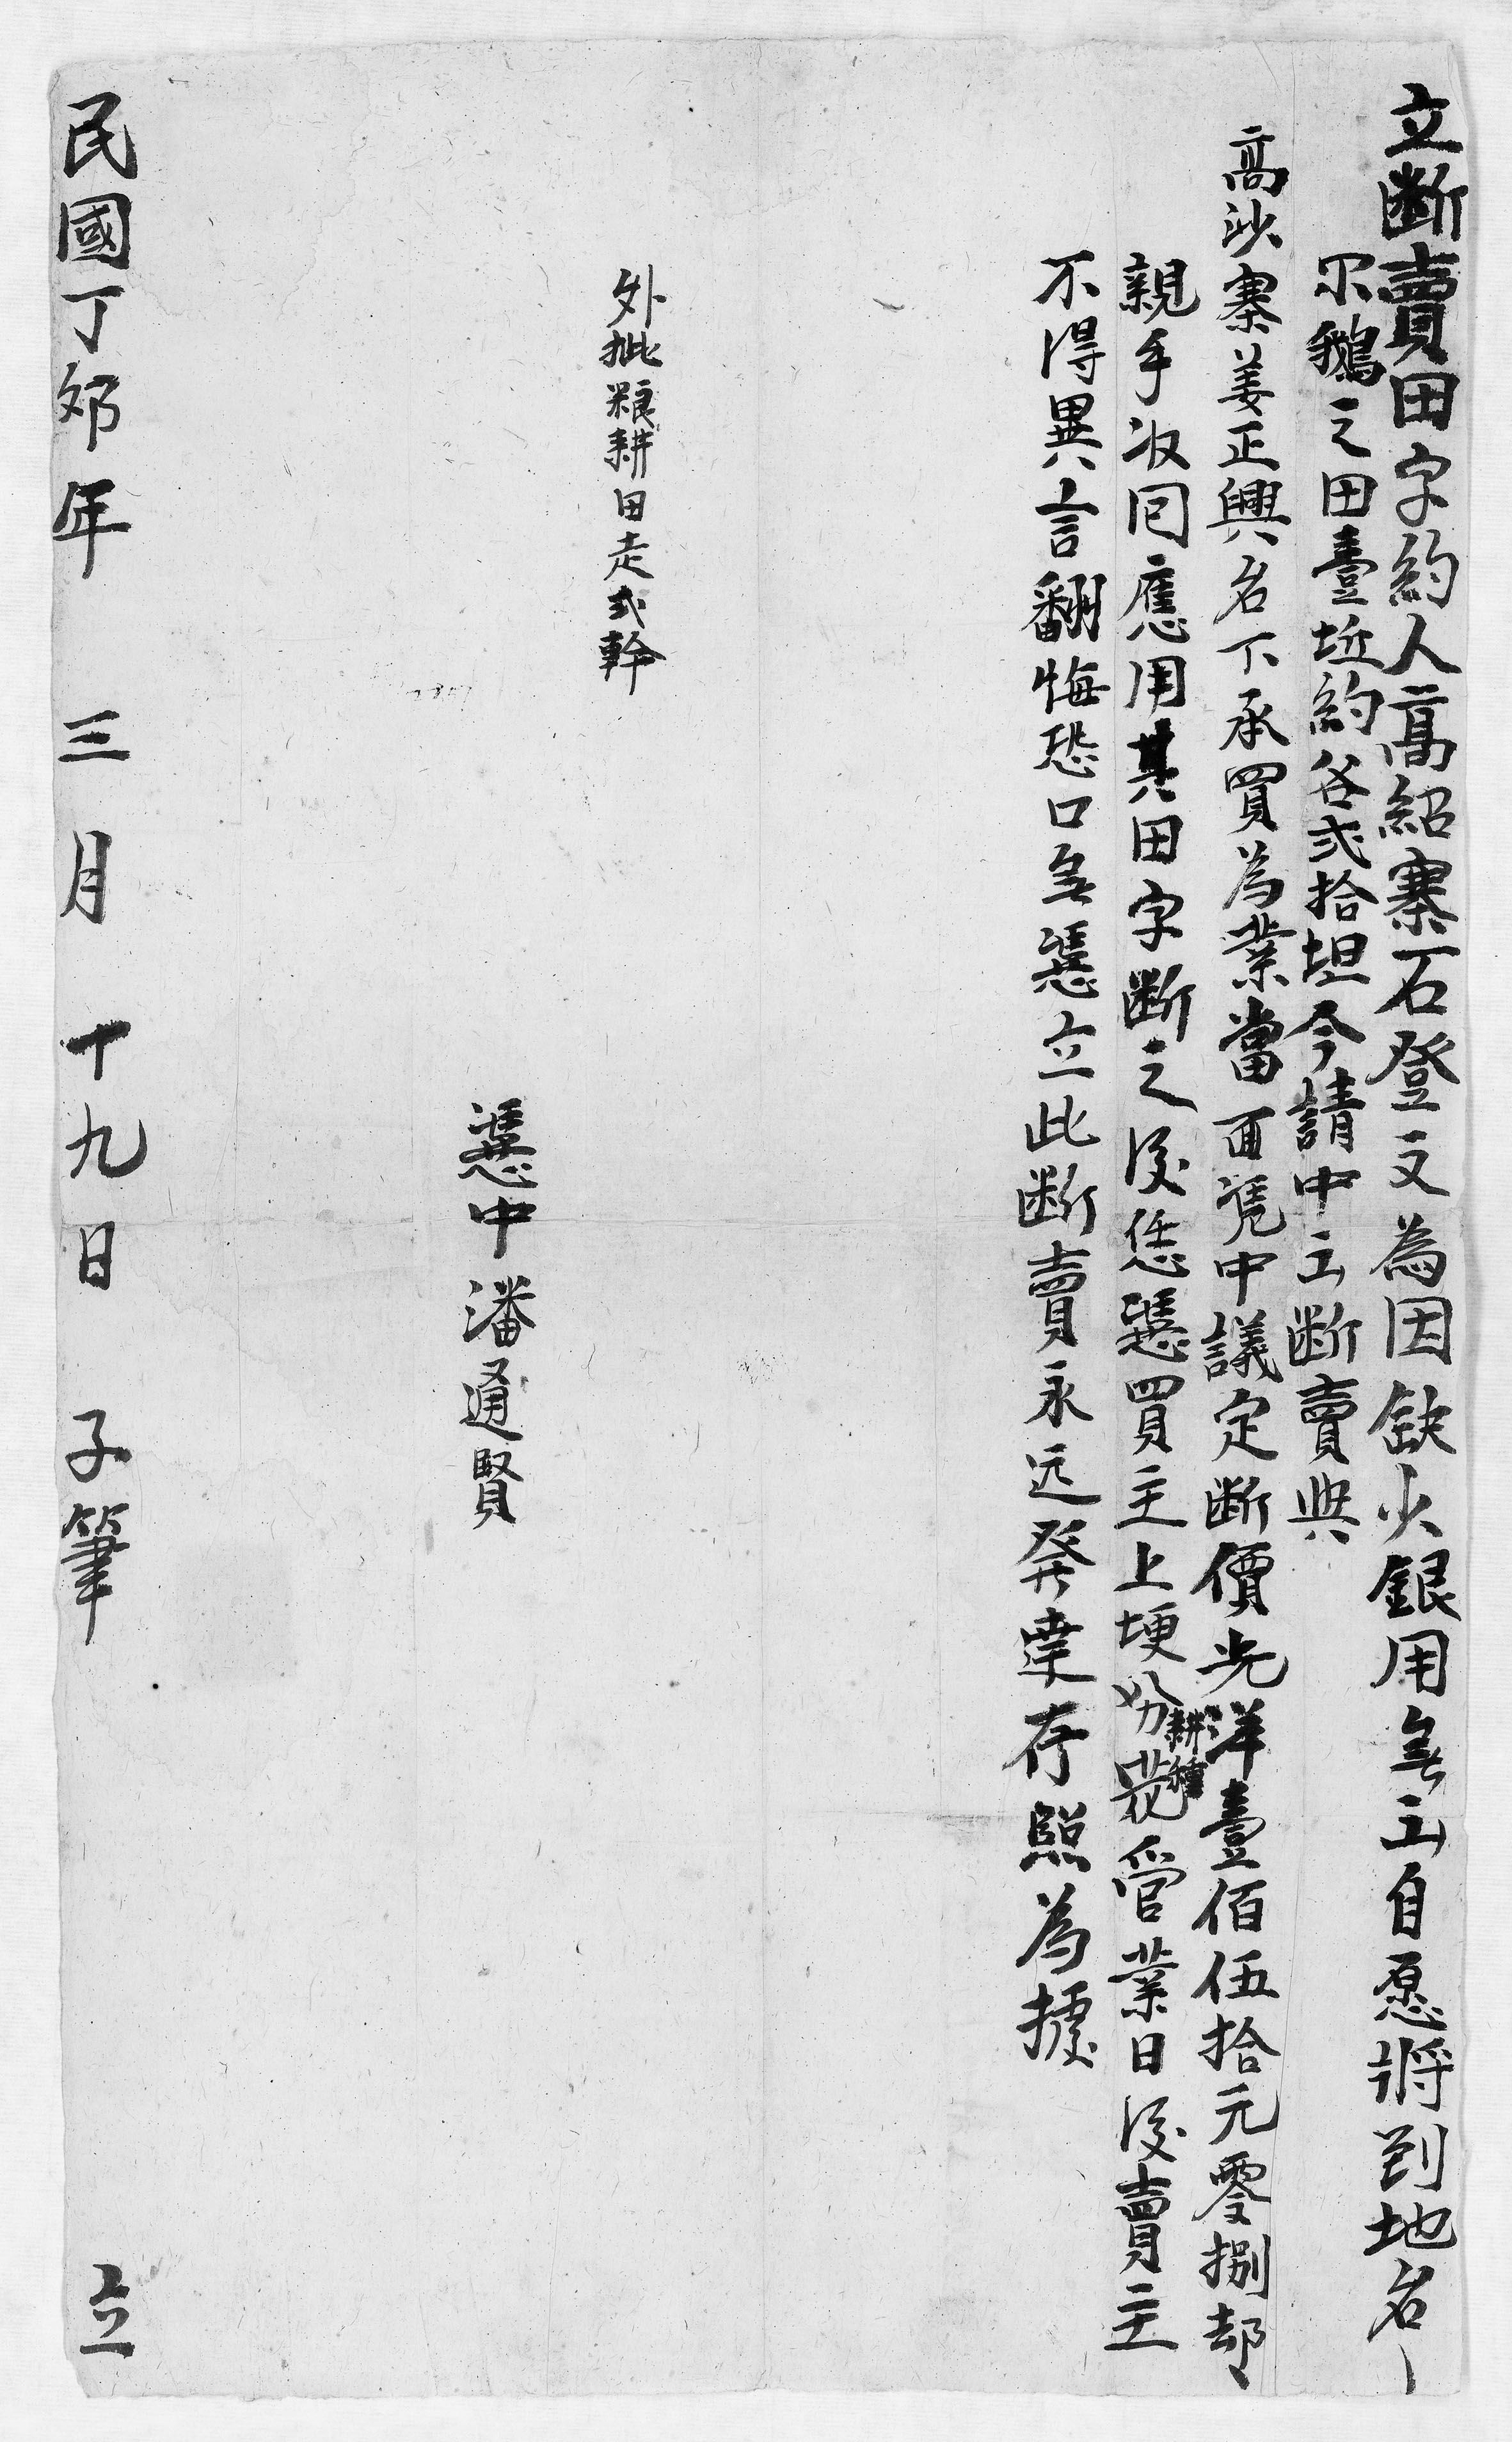 立断賣田字約人髙紹寨石登文為因缺少銀用無立自愿將到地名
尔鵝之田壹坵約谷弍拾担今請中立断賣與
髙沙寨姜正興名下承買為業當面凭中議定断價光洋壹佰伍拾元零捌却
親手收囘應用其田字断之後恁憑買主上埂耕種管業日後賣主
不得異言翻悔恐口無憑立此断賣永远發達存照為據
外批粮耕田走弍幹
憑中潘通賢
民國丁卯年 三月十九日 子筆 立